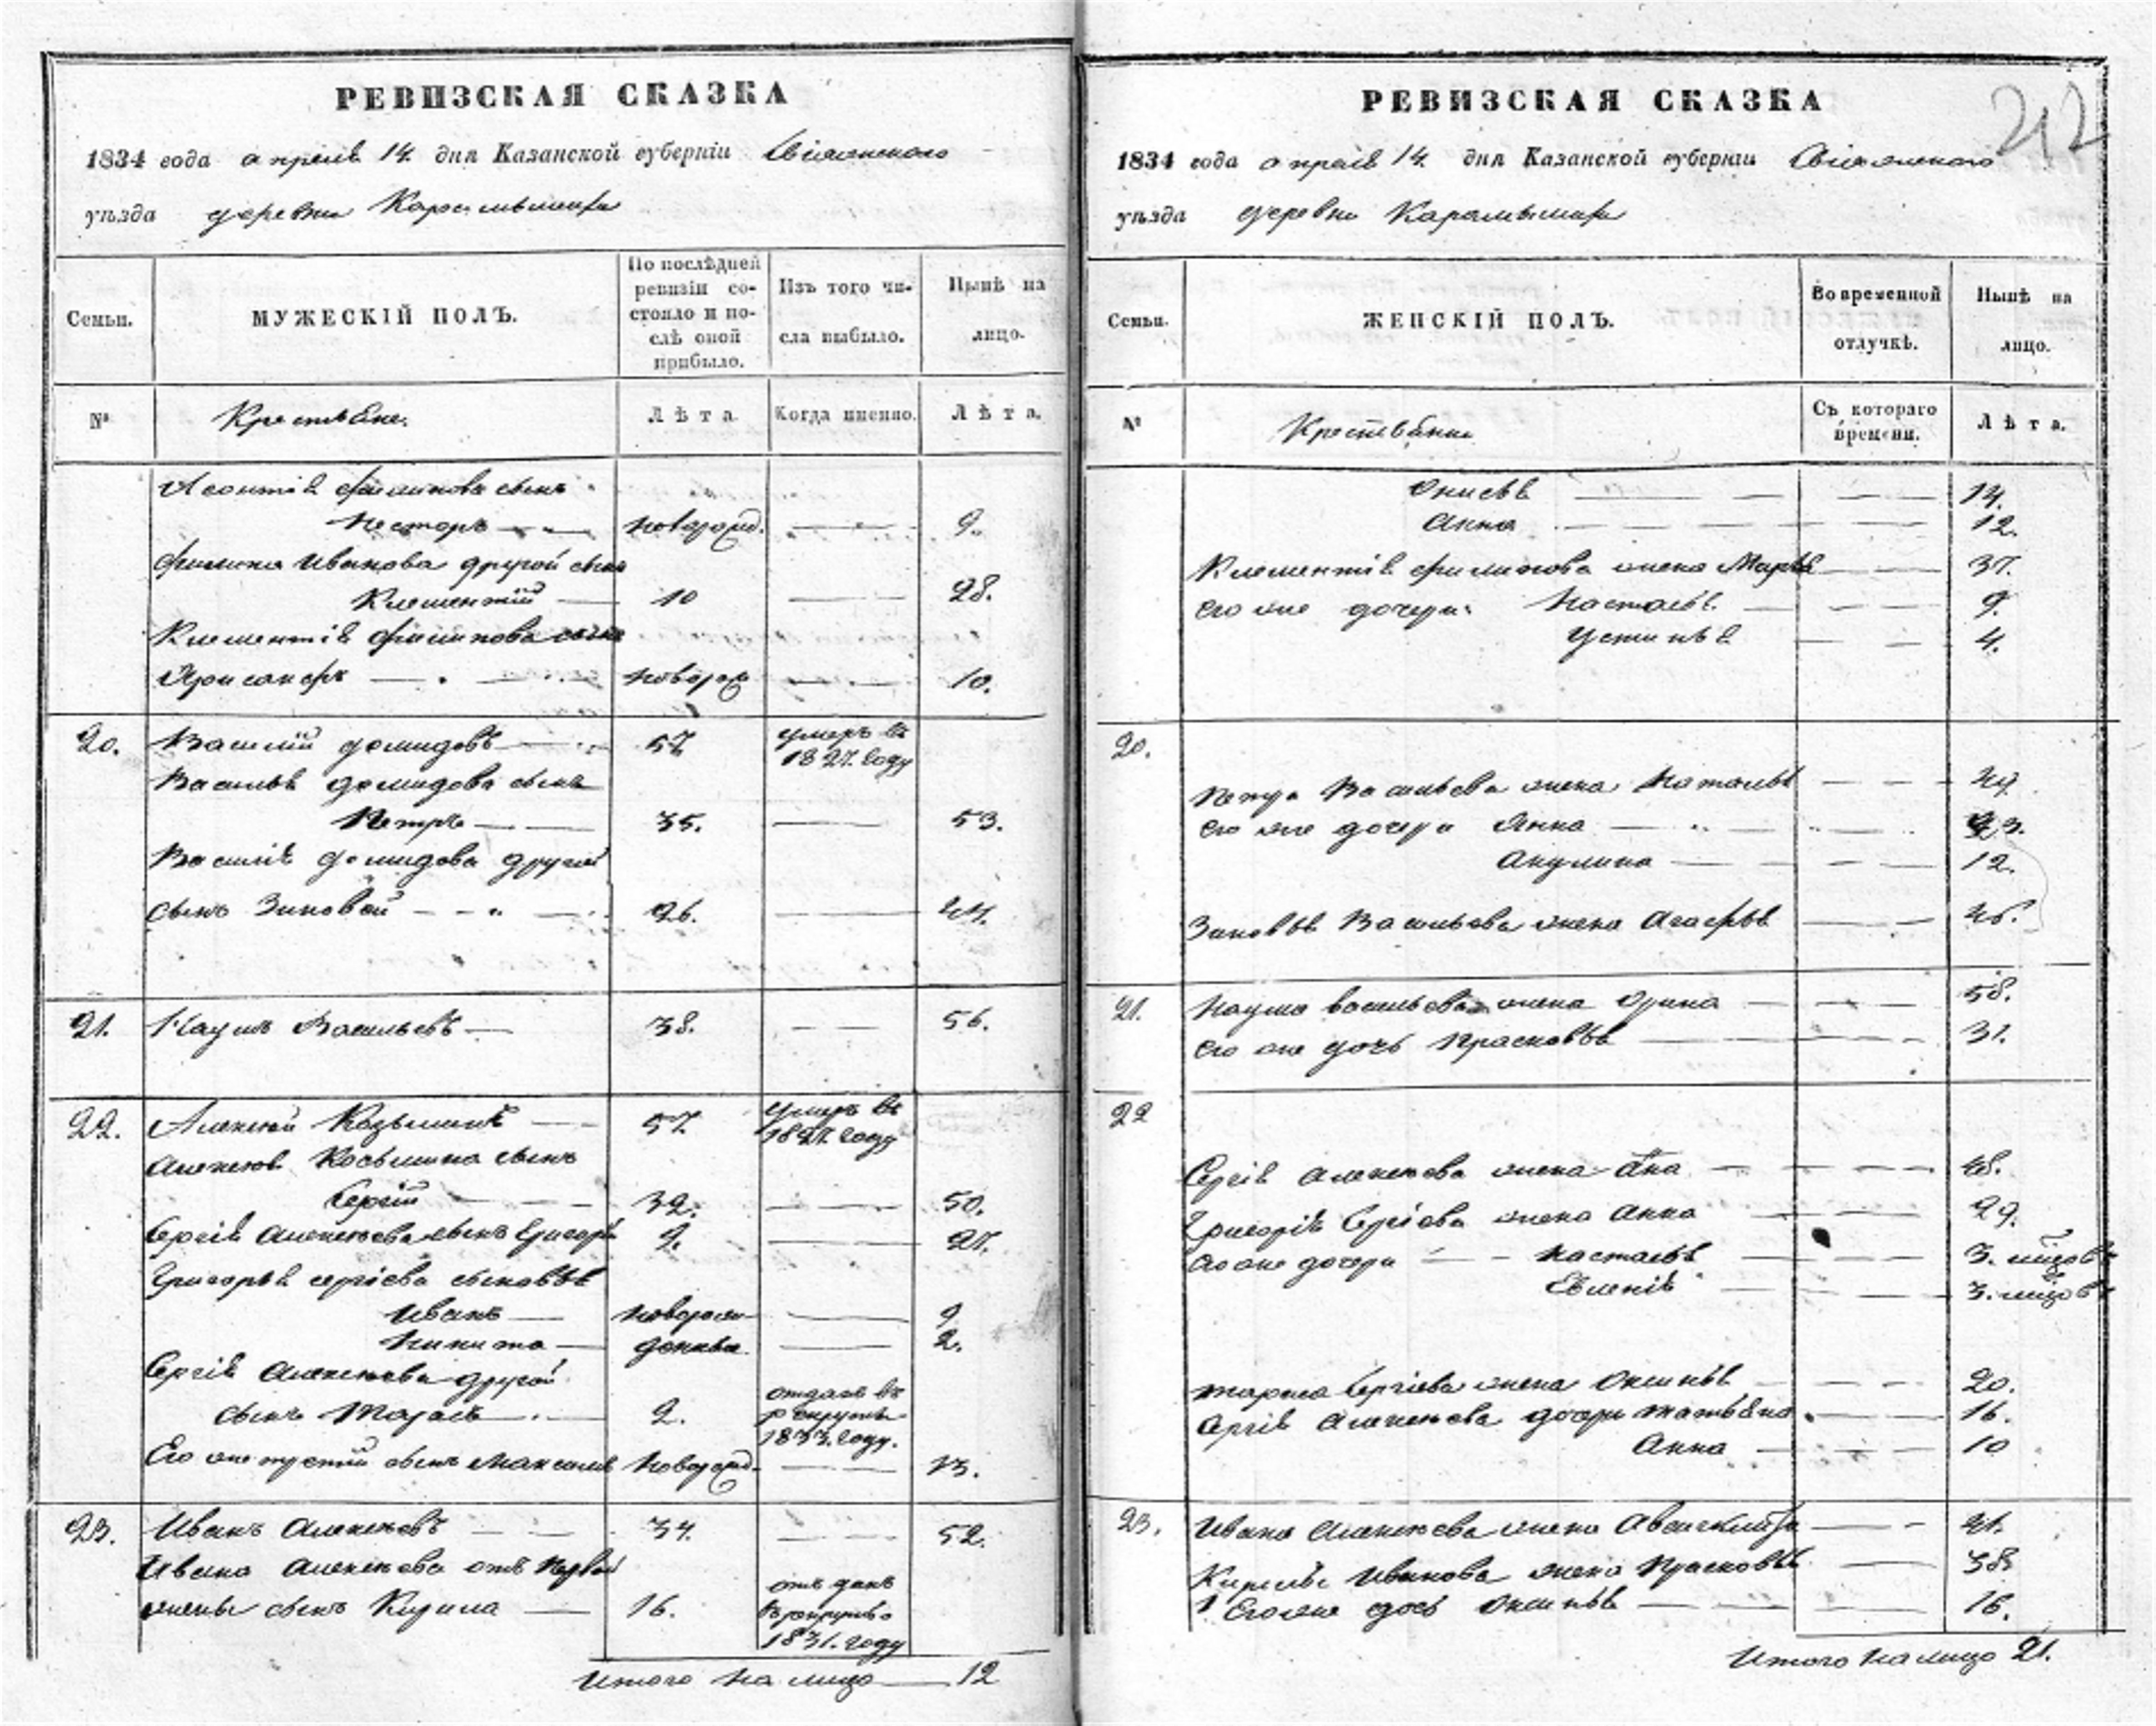 РЕВИЗСКАЯ СКАЗКА
1834 года апреля 14 дня Казанской губерніи Свіяжскаго
уѣзда деревни Карамышихи
Семьи.
МУЖЕСКІЙ ПОЛЪ.
По послѣдней ревизіи состояло и послѣ оной прибыло.
Изъ того числа выбыло.
Нынѣ на лицо.
№
Крестьяне.
Лѣта
Когда именно.
Лѣта.
Леонтія Филипова сынъ
Несторъ новорожд. 9.
Филипа Иванова другой сынъ
Клементій 10 28.
Клементія Филипова сынъ
Хрисанфъ новорож 10.
20. Василій Демидовъ 57 умеръ въ 1827. году
Василья Демидова сынъ
Петръ 35. 53.
Василія Демидова другой
сынъ Зиновей 26. 44.
21. Наумъ Васильевъ 38. 56.
22. Алексей Козьминъ 57. умеръ въ 1827. году
Алексея Косьмина сынъ
Сергій 32. 50.
Сергія Алексеева сынъ Григорій 9. 27.
Григорья Сергіева сыновья
Иванъ новорож- 9
Никита денныя 2.
Сергія Алексеева другой
сынъ Тарасъ 2. отданъ въ рекруты 1833. году.
Его же третій сынъ Максимъ новорожд. 13.
23. Иванъ Алексеевъ 34. 52.
Ивана Алексеева отъ первой
жены сынъ Кирила 16. отъ данъ въ рекруты 1831. году
Итого на лицо 12
РЕВИЗСКАЯ СКАЗКА
212
1834 года апреля 14. дня Казанской губерніи Свіяжскаго
уѣзда деревни Карамышихи
Семьи.
ЖЕНСКІЙ ПОЛЪ.
Во временной отлучкѣ.
Нынѣ на лицо.
№
Крестьянки
Съ котораго времени.
Лѣта.
Онисья 14.
Анна 12.
Клементія Филипова жена Марья 37.
Его же дочери: Настасья 9.
Устинья 4.
20.
Петра Васильева жена Наталья 49.
Его же дочери Анна 23.
Акулина 12.
Зиновья Васильева жена Агафья 46.
21. Наума Васильева жена Орина 58.
Его же дочь Прасковья 31.
22
Сергія Алексеева жена Ана 48.
Григорія Сергіева жена Анна 29.
Его же дочери Настасья 3. мѣсяцовъ
Евгенія 3. мѣсяцовъ
Тараса Сергіева жена Оксинья 20.
Сергія Алексеева дочери Татьяна 16.
Анна 10
23. Ивана Алексеева жена 41.
Кирилы Иванова жена Прасковья 38.
Его же дочь Оксинья 16.
Итого на лицо 21.